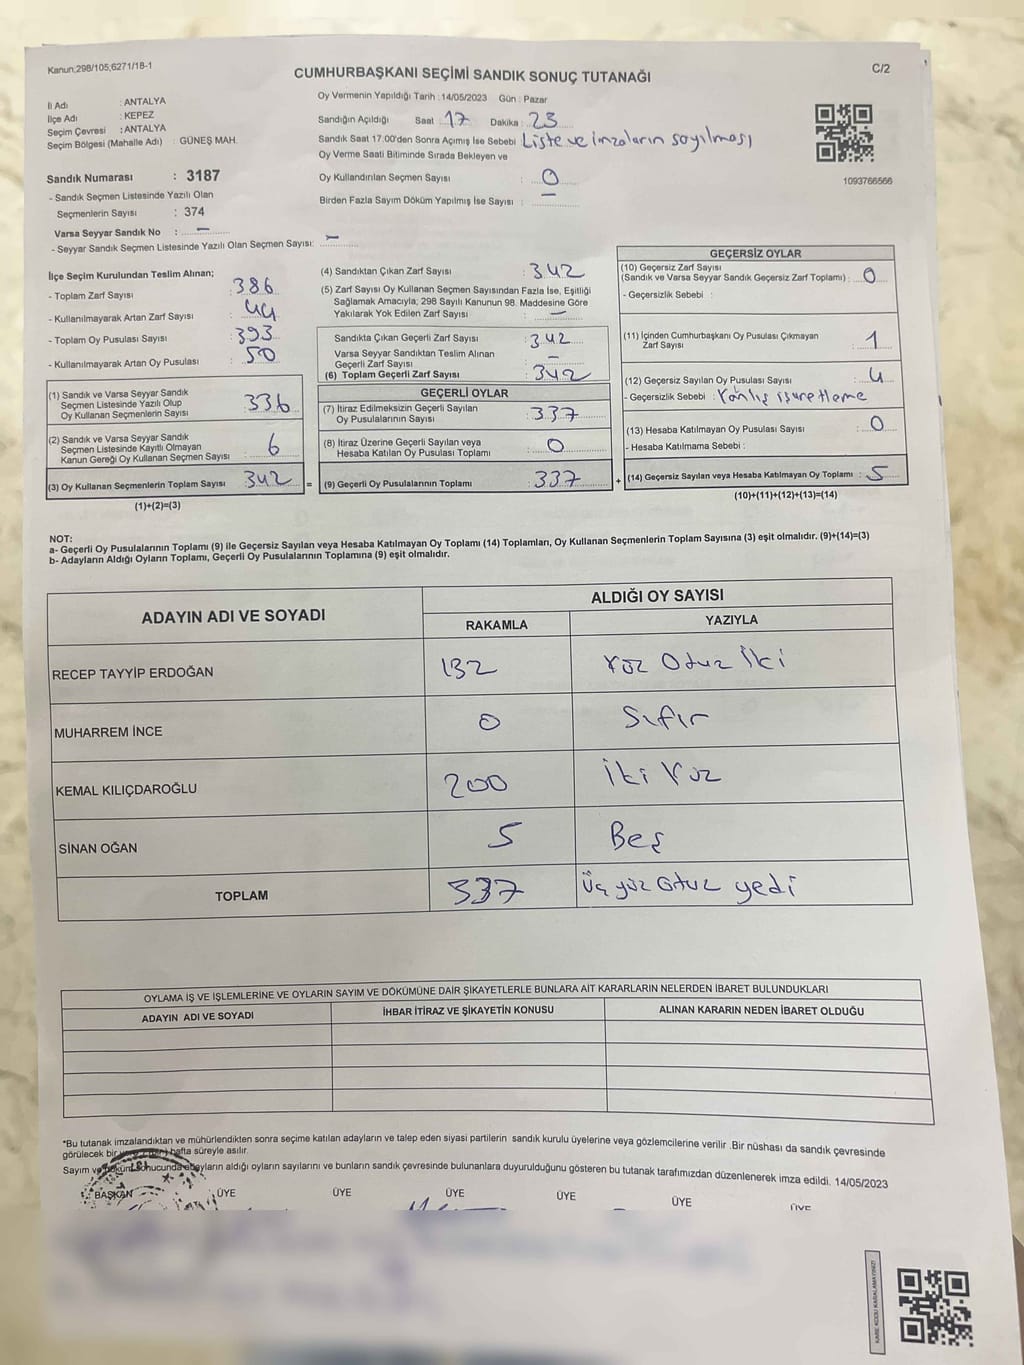 Kanun;298/105;6271/18-1
CUMHURBAŞKANI SEÇİMİ SANDIK SONUÇ TUTANAĞI
C/2
İl Adı : ANTALYA
İlçe Adı : KEPEZ
Seçim Çevresi : ANTALYA
Seçim Bölgesi (Mahalle Adı) : GÜNEŞ MAH.
Sandık Numarası : 3187
- Sandık Seçmen Listesinde Yazılı Olan
Seçmenlerin Sayısı : 374
Varsa Seyyar Sandık No : —
- Seyyar Sandık Seçmen Listesinde Yazılı Olan Seçmen Sayısı: —
Oy Vermenin Yapıldığı Tarih : 14/05/2023 Gün : Pazar
Sandığın Açıldığı Saat 17 Dakika : 23
Sandık Saat 17.00'den Sonra Açımış İse Sebebi : Liste ve imzaların sayılması
Oy Verme Saati Bitiminde Sırada Bekleyen ve
Oy Kullandırılan Seçmen Sayısı : 0
Birden Fazla Sayım Döküm Yapılmış İse Sayısı : —
1093766566
İlçe Seçim Kurulundan Teslim Alınan;
- Toplam Zarf Sayısı : 386
- Kullanılmayarak Artan Zarf Sayısı : 44
- Toplam Oy Pusulası Sayısı : 393
- Kullanılmayarak Artan Oy Pusulası : 50
(1) Sandık ve Varsa Seyyar Sandık
Seçmen Listesinde Yazılı Olup
Oy Kullanan Seçmenlerin Sayısı : 336
(2) Sandık ve Varsa Seyyar Sandık
Seçmen Listesinde Kayıtlı Olmayan
Kanun Gereği Oy Kullanan Seçmen Sayısı : 6
(3) Oy Kullanan Seçmenlerin Toplam Sayısı : 342 =
(1)+(2)=(3)
(4) Sandıktan Çıkan Zarf Sayısı : 342
(5) Zarf Sayısı Oy Kullanan Seçmen Sayısından Fazla İse, Eşitliği
Sağlamak Amacıyla; 298 Sayılı Kanunun 98. Maddesine Göre
Yakılarak Yok Edilen Zarf Sayısı : —
Sandıkta Çıkan Geçerli Zarf Sayısı : 342
Varsa Seyyar Sandıktan Teslim Alınan
Geçerli Zarf Sayısı : —
(6) Toplam Geçerli Zarf Sayısı : 342
GEÇERLİ OYLAR
(7) İtiraz Edilmeksizin Geçerli Sayılan
Oy Pusulalarının Sayısı : 337
(8) İtiraz Üzerine Geçerli Sayılan veya
Hesaba Katılan Oy Pusulası Toplamı : 0
(9) Geçerli Oy Pusulalarının Toplamı : 337 +
GEÇERSİZ OYLAR
(10) Geçersiz Zarf Sayısı
(Sandık ve Varsa Seyyar Sandık Geçersiz Zarf Toplamı) : 0
- Geçersizlik Sebebi :
(11) İçinden Cumhurbaşkanı Oy Pusulası Çıkmayan
Zarf Sayısı : 1
(12) Geçersiz Sayılan Oy Pusulası Sayısı : 4
- Geçersizlik Sebebi : Yanlış işaretleme
(13) Hesaba Katılmayan Oy Pusulası Sayısı : 0
- Hesaba Katılmama Sebebi :
(14) Geçersiz Sayılan veya Hesaba Katılmayan Oy Toplamı : 5
(10)+(11)+(12)+(13)=(14)
NOT:
a- Geçerli Oy Pusulalarının Toplamı (9) ile Geçersiz Sayılan veya Hesaba Katılmayan Oy Toplamı (14) Toplamları, Oy Kullanan Seçmenlerin Toplam Sayısına (3) eşit olmalıdır. (9)+(14)=(3)
b- Adayların Aldığı Oyların Toplamı, Geçerli Oy Pusulalarının Toplamına (9) eşit olmalıdır.
ADAYIN ADI VE SOYADI
ALDIĞI OY SAYISI
RAKAMLA YAZIYLA
RECEP TAYYİP ERDOĞAN 132 Yüz Otuz İki
MUHARREM İNCE 0 Sıfır
KEMAL KILIÇDAROĞLU 200 İki Yüz
SİNAN OĞAN 5 Beş
TOPLAM 337 Üç yüz Otuz yedi
OYLAMA İŞ VE İŞLEMLERİNE VE OYLARIN SAYIM VE DÖKÜMÜNE DAİR ŞİKAYETLERLE BUNLARA AİT KARARLARIN NELERDEN İBARET BULUNDUKLARI
ADAYIN ADI VE SOYADI İHBAR İTİRAZ VE ŞİKAYETİN KONUSU ALINAN KARARIN NEDEN İBARET OLDUĞU
*Bu tutanak imzalandıktan ve mühürlendikten sonra seçime katılan adayların ve talep eden siyasi partilerin sandık kurulu üyelerine veya gözlemcilerine verilir .Bir nüshası da sandık çevresinde
görülecek bir hafta süreyle asılır.
Sayım ve sonucunda adayların aldığı oyların sayılarını ve bunların sandık çevresinde bulunanlara duyurulduğunu gösteren bu tutanak tarafımızdan düzenlenerek imza edildi. 14/05/2023
BAŞKAN ÜYE ÜYE ÜYE ÜYE ÜYE ÜYE